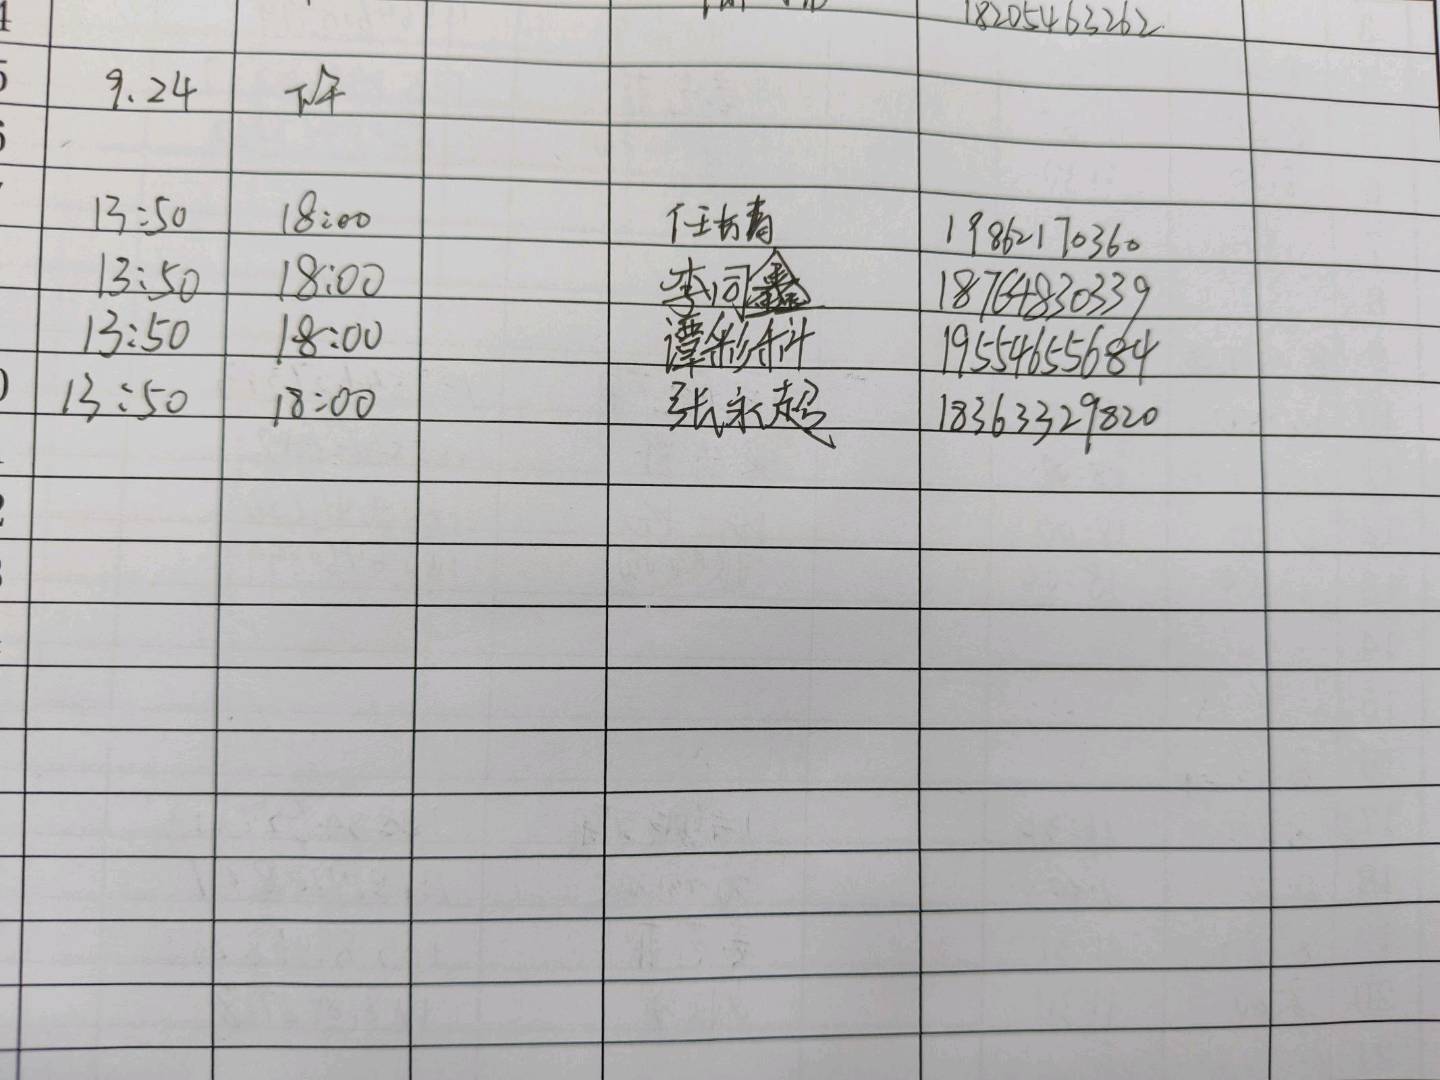 18205463262
9.24 下午
13:50 18:00 任长青 19862170360
13:50 18:00 李司鑫 18764830339
13:50 18:00 谭彩科 19554655684
13:50 18:00 张永超 18363329820